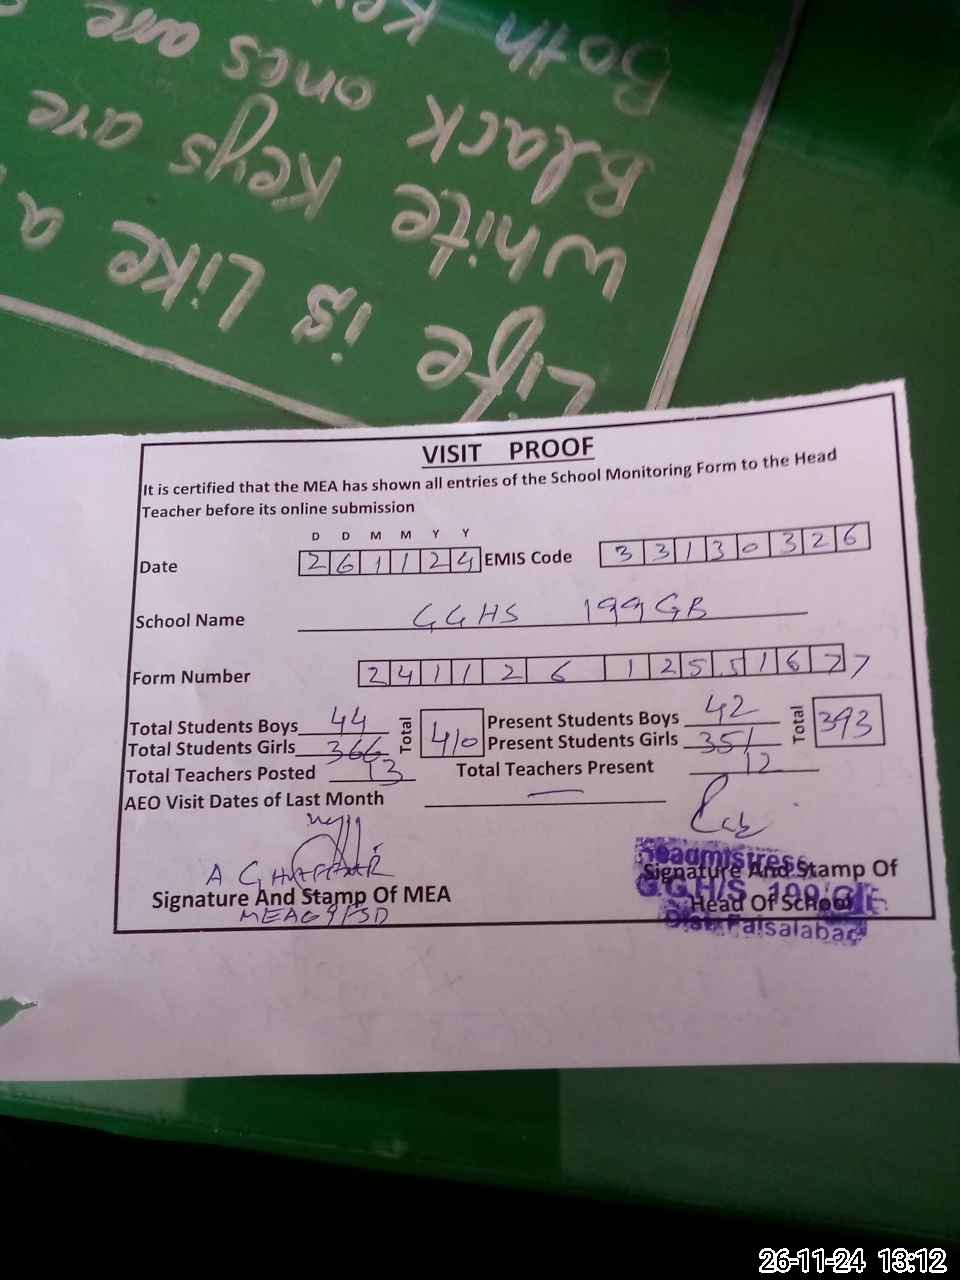 Life is Like a
White Keys are
Black ones are
Both Ke
VISIT PROOF
It is certified that the MEA has shown all entries of the School Monitoring Form to the Head
Teacher before its online submission
D D M M Y Y
Date 261124 EMIS Code 33130326
School Name GGHS 199GB
Form Number 2411261255167 7
Total Students Boys 44 Total 410 Present Students Boys 42 Total 393
Total Students Girls 366 Present Students Girls 351
Total Teachers Posted 13 Total Teachers Present 12
AEO Visit Dates of Last Month —
A GHAFFAR
Signature And Stamp Of MEA
MEA69 FSD
Headmistress
Signature And Stamp Of
G.G.H/S 199/G.B.
Head Of School
Dist. Faisalabad
26-11-24 13:12